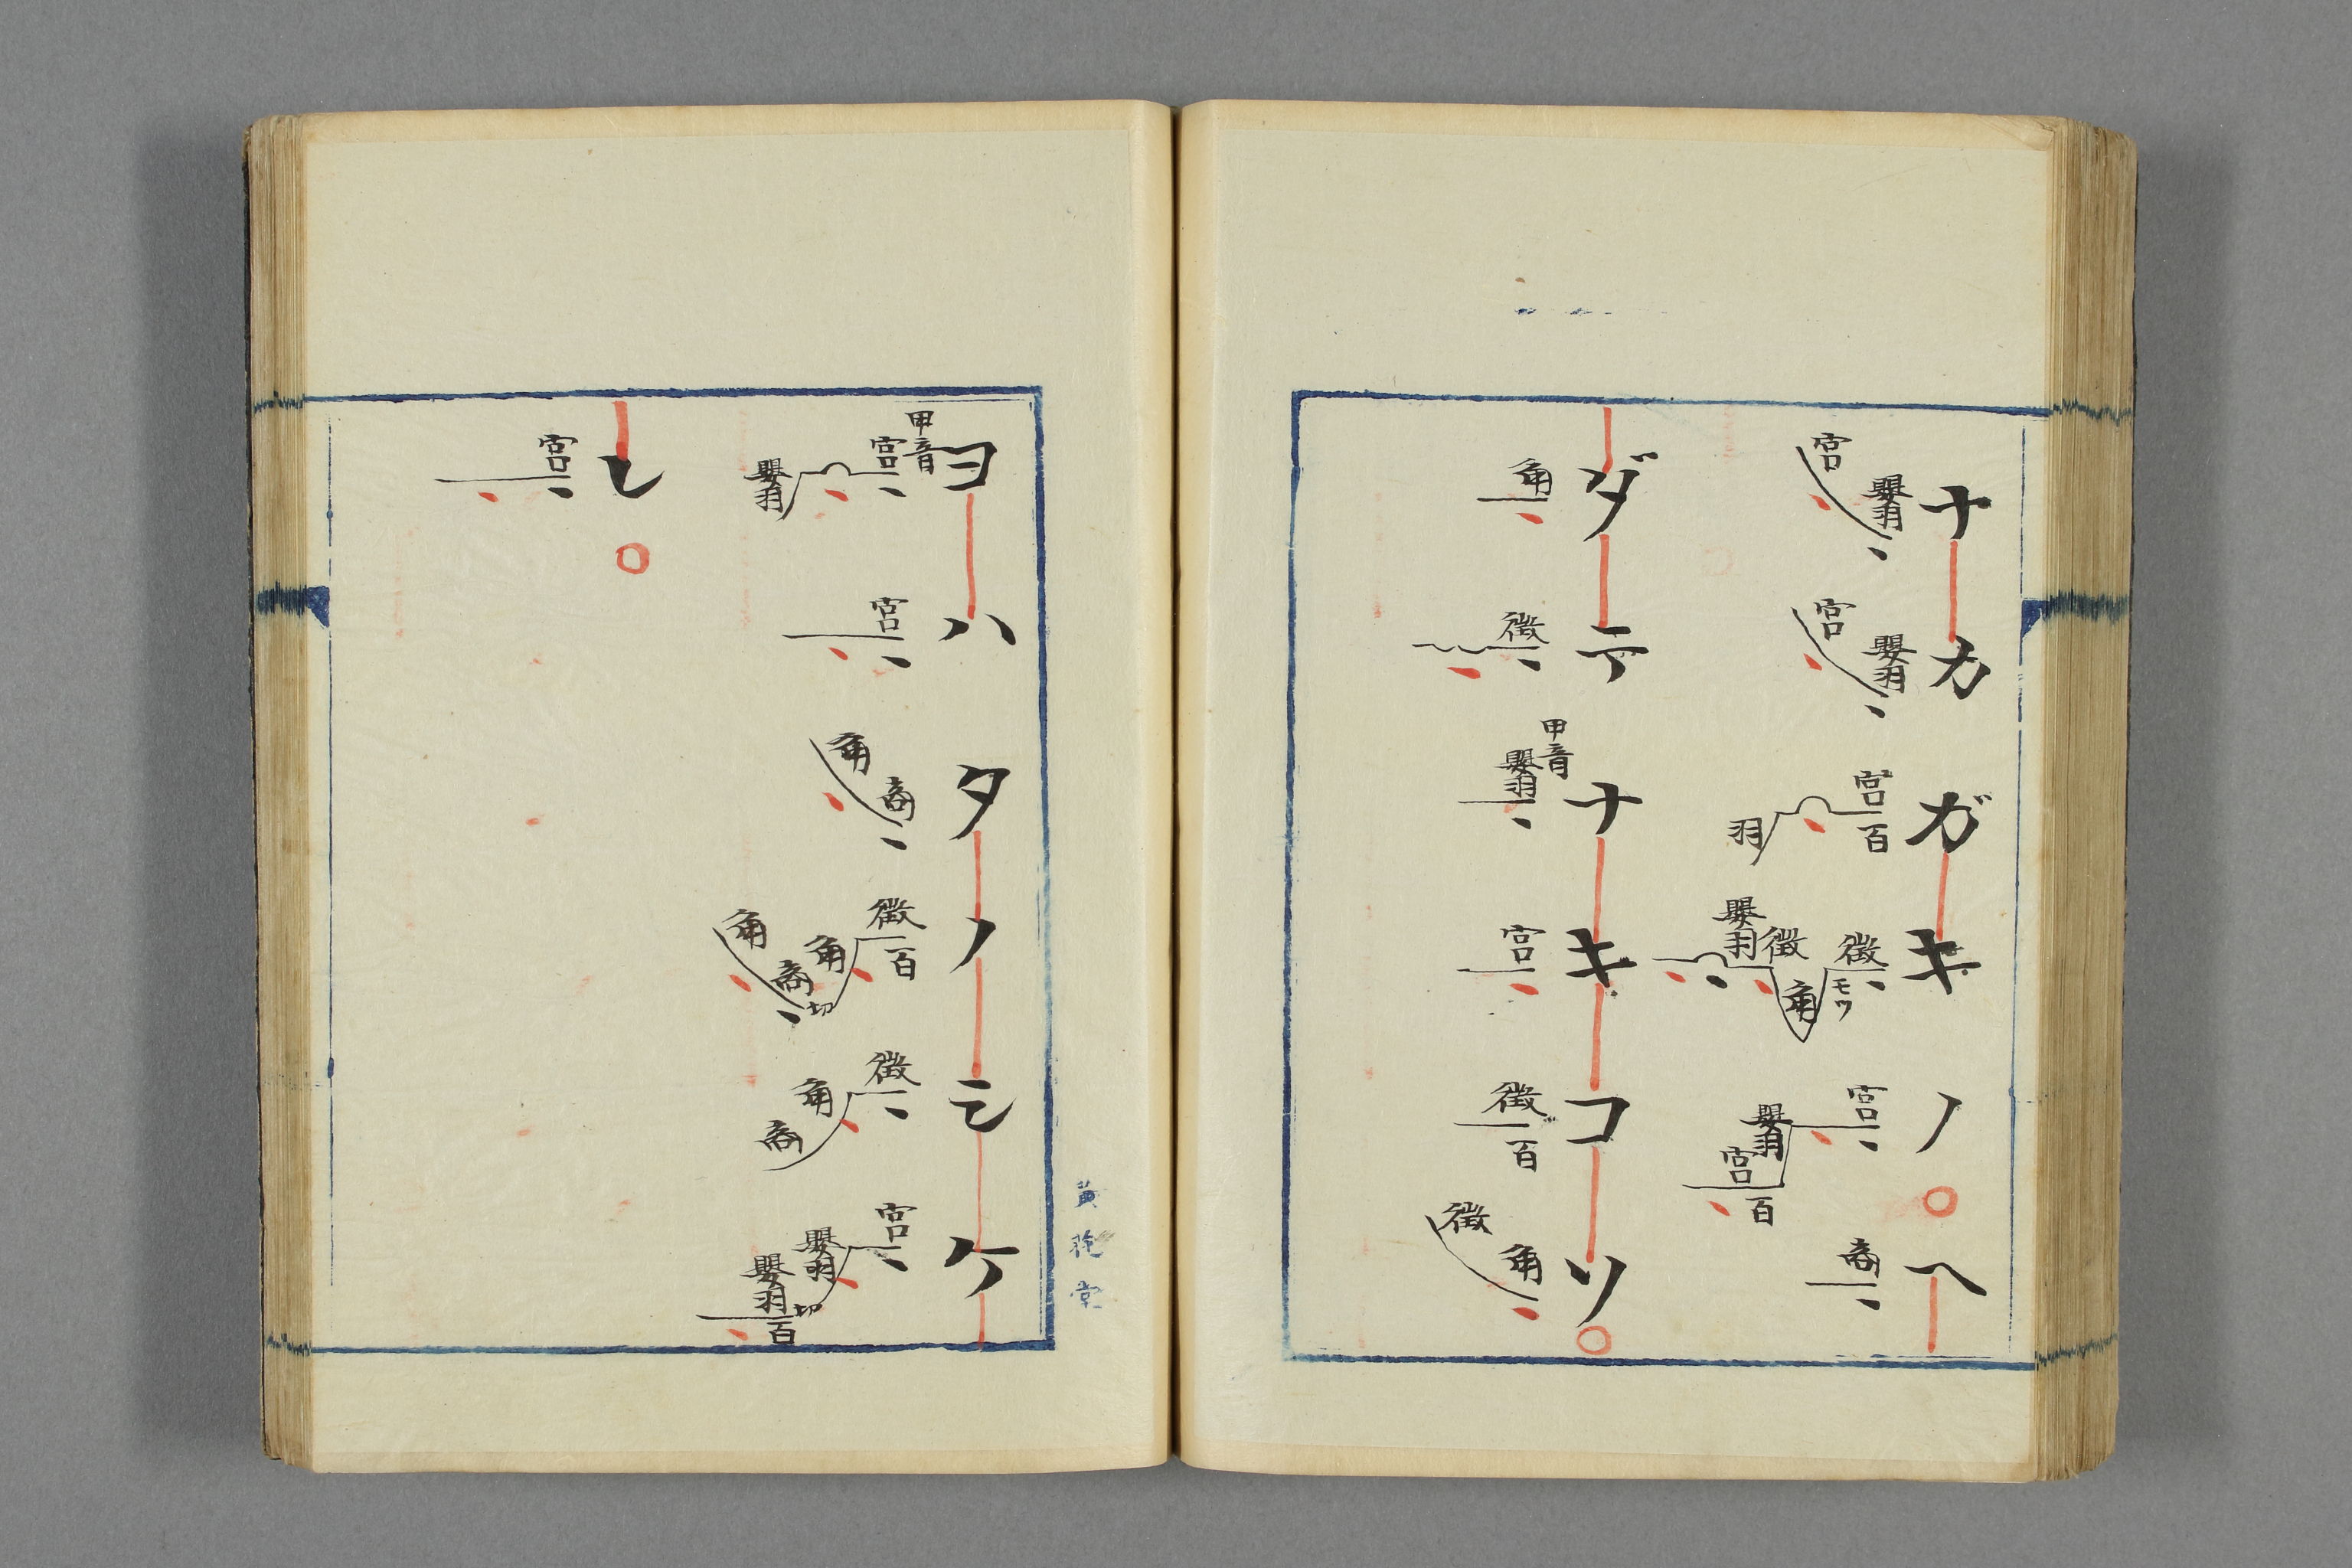 ナカガキノ○ヘ
嬰羽 宮
嬰羽 宮
宮 百 羽
徴 モツ 角 徴 嬰羽
宮 嬰羽 宮 百
商
ダテナキコソ○
角
徴
甲音 嬰羽
宮
徴 百
角 徴
ヨハタノシケ
甲音 宮 嬰羽
宮
商 角
徴 百 角 切 商 角
徴 角 商
宮 嬰羽 切 嬰羽 百
レ○
宮